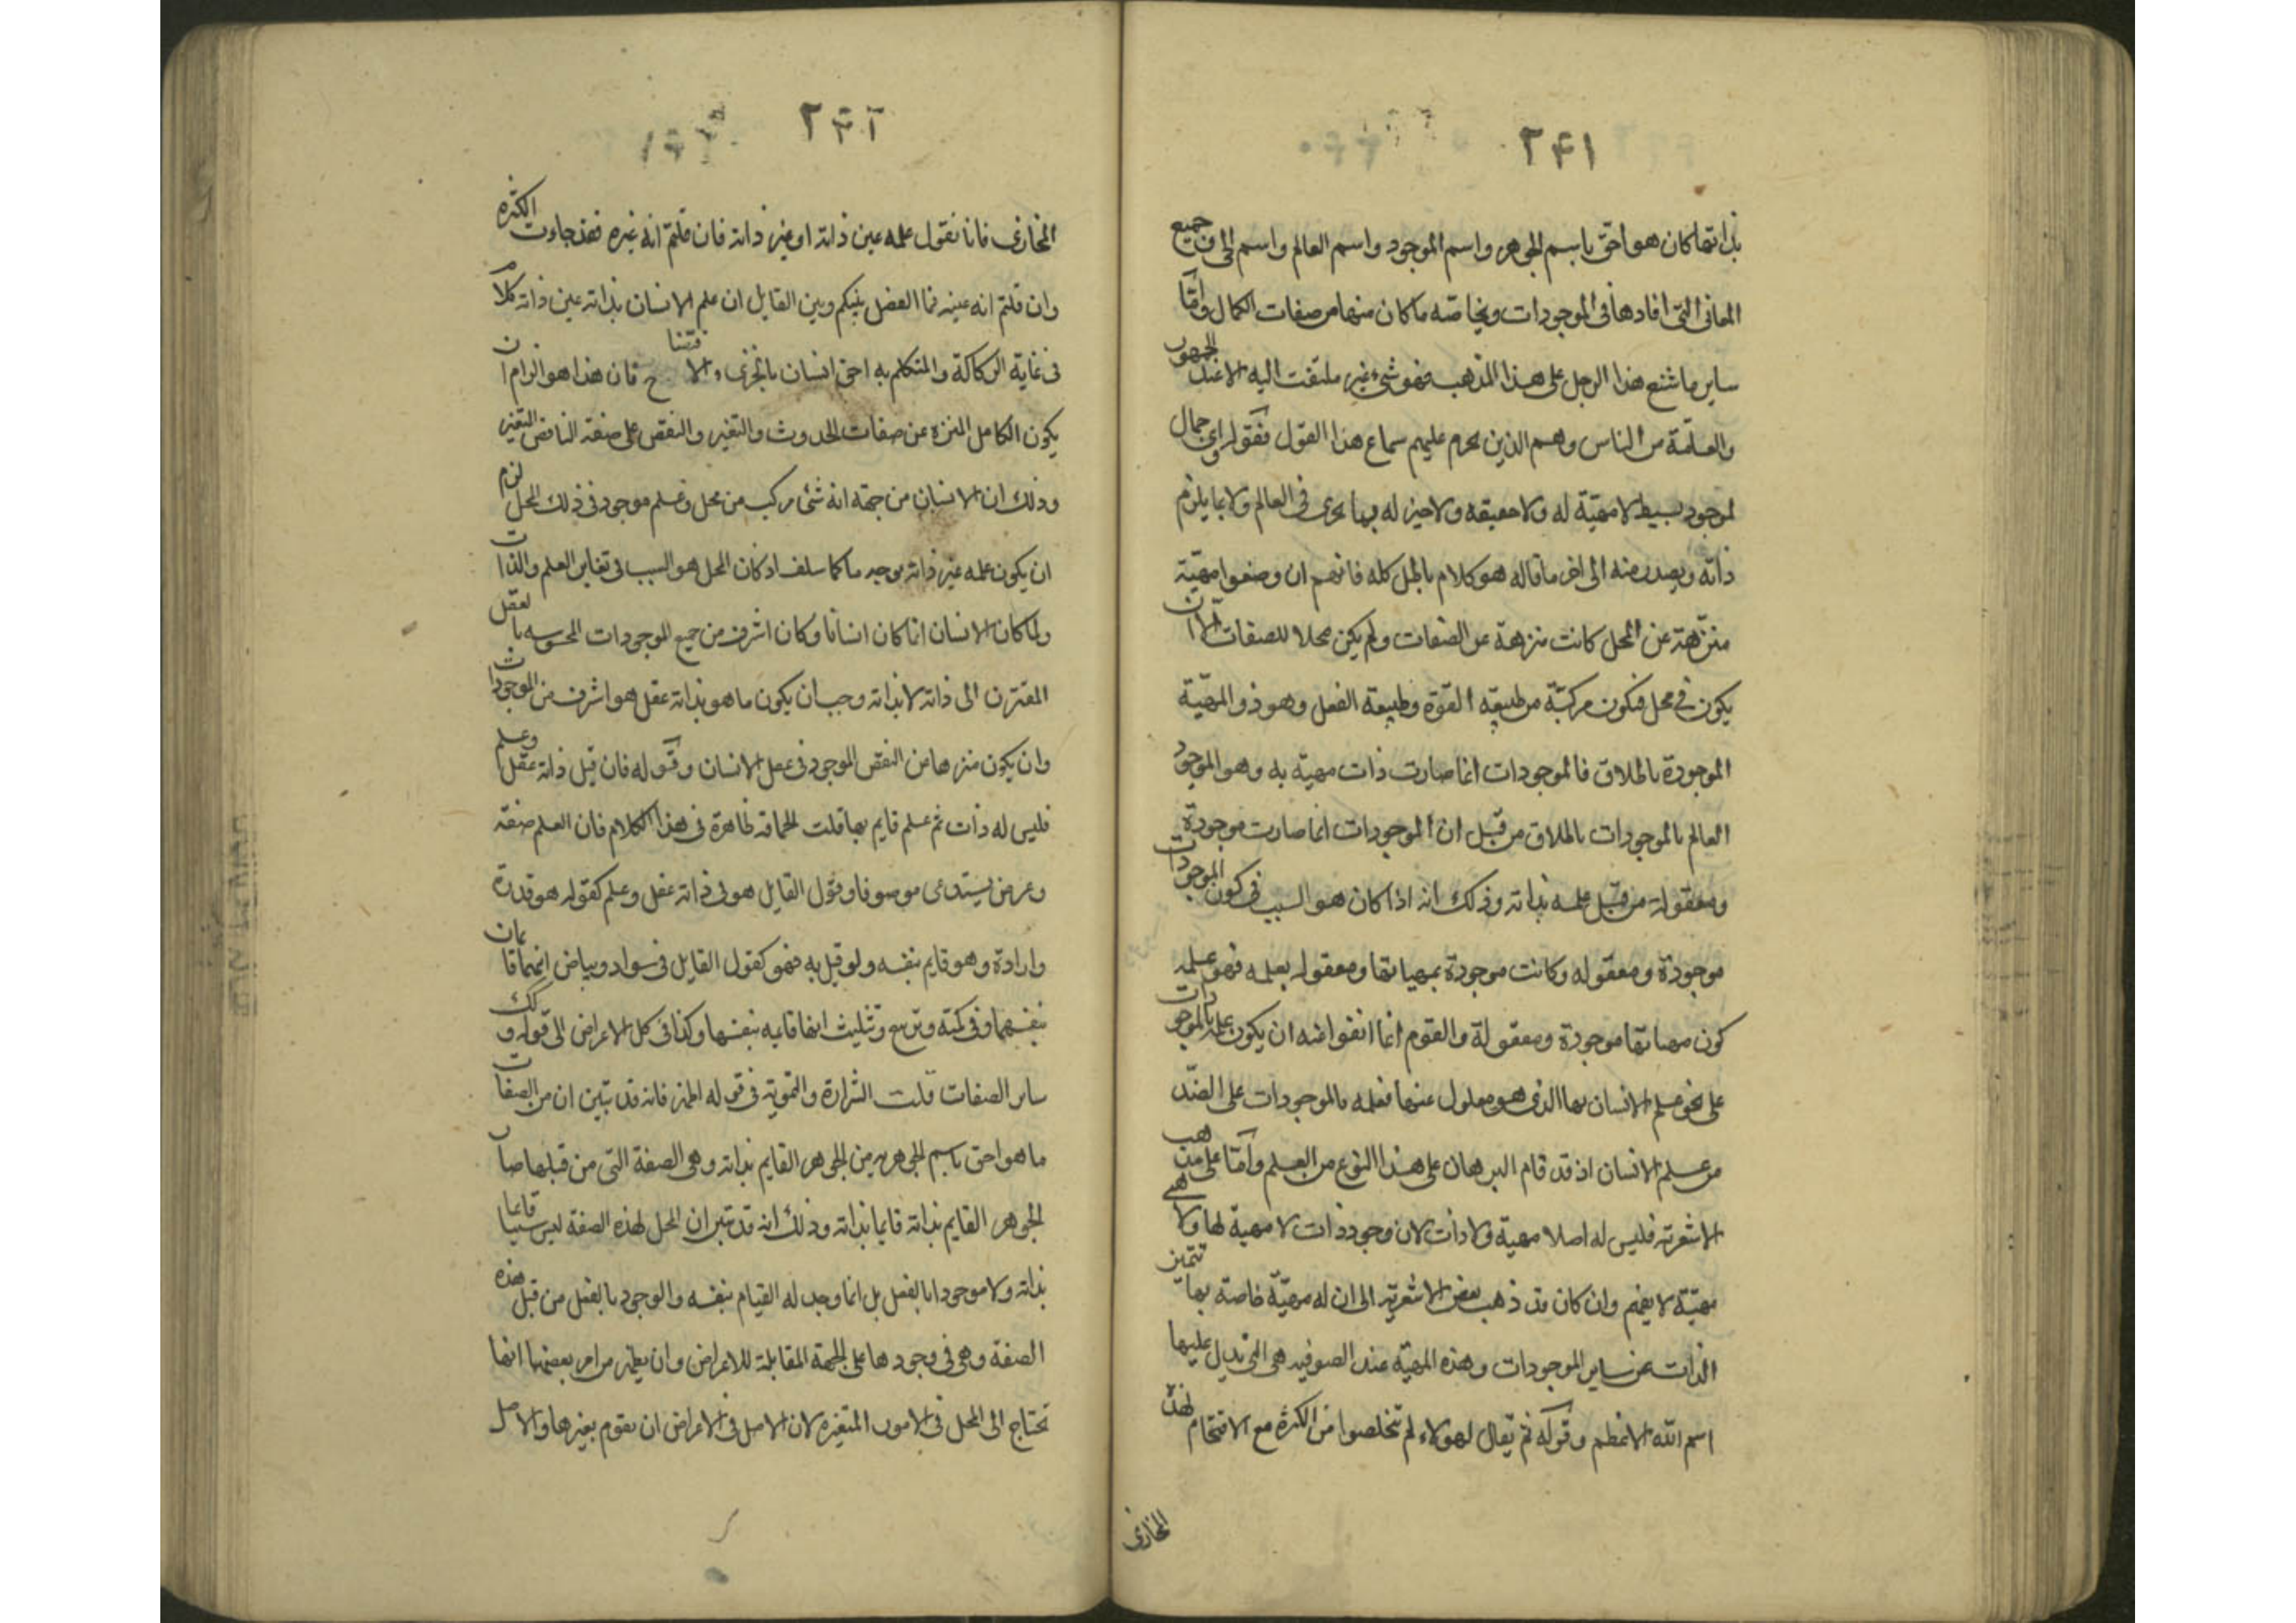 ٢٤١
بذاتها كان هو احق باسم الجوهر واسم الموجود واسم العالم واسم الحى فى جميع
المعانى التى افادها فى الموجودات وبخاصّه ما كان منها من صفات الكمال وامّا
ساير ما شنع هذا الرجل على هذا المذهب فهو شىء غير ملتفت اليه الا عند الجمهور
والعامّة من الناس وهم الذين يحرم عليهم سماع هذا القول فقوله واى جمال
لموجود بسيط لا مهيّة له ولا حقيقه ولا خبر له بما يجرى فى العالم ولا بما يلزم
ذاته ويصدر منه الى اخر ما قاله هو كلام باطل كله فانهم ان وضعوا مهيّة
منزّهة عن المحل كانت منزهة عن الصفات ولم يكن محلا للصفات الّا ان
يكون فى محل فتكون مركبّة من طبيعة القوّة وطبيعة الفعل وهو ذو المهيّة
الموجودة باطلاق فالموجودات انما صارت ذات مهيّة به وهو الموجود
العالم بالموجودات باطلاق من قبل ان الموجودات انما صارت موجودة
ومعقوله من قبل علمه بذاته وذلك انه اذا كان هو السبب فى كون الموجودات
موجودة ومعقوله وكانت موجودة بمهياتها ومعقوله بعلمه فهو علمه
كون مهياتها موجودة ومعقولة والقوم انما انفوا عنه ان يكون علمه بالموجودات
على نحو علم الانسان بها الذى هو معلول عنها فعلمه بالموجودات على الضدّ
من علم الانسان اذ قد قام البرهان على هذا النوع من العلم وامّا على مذهب
الاشعريّه فليس له اصلا مهيّة ولا ذات لان وجود ذات لا مهية لها ولا هى
مهيّة لا يفهم وان كان قد ذهب بعض الاشعريّه الى ان له مهيّة خاصّة بها تتميز
الذات عن ساير الموجودات وهذه المهيّه عند الصوفيه هى التى يدل عليها
اسم الله الاعظم وقوله ثم يقال لهولاء لم تخلصوا من الكثرة مع الاقتحام لهذه
المخازى
٢٤٢
المخازى فانا نقول علمه عين ذاته او غير ذاته فان قلتم انه غيره فقد جاءت الكثره
وان قلتم انه عينه فما الفصل بينكم وبين القايل ان علم الانسان بذاته عين ذاته كلام
فى غاية الركاكة والمتكلم به احق انسان بالخزى والافتنا ح فان هذا هو الزام ان
يكون الكامل المنزه عن صفات الحدوث والتغير والنقص على صفة الناقص المتغير
وذلك ان الانسان من جهة انه شئ مركب من محل وعلم موجود فى ذلك المحل لزم
ان يكون علمه غير ذاته بوجه ما كما سلف اذ كان المحل هو السبب فى تغاير العلم والذات
ولما كان الانسان انما كان انسانا وكان اشرف من جميع الموجودات المحسوسه بالعقل
المقترن الى ذاته لا بذاته وجب ان يكون ما هو بذاته عقل هو اشرف من الموجودات
وان يكون منزها من النقص الموجود فى عقل الانسان وقوله فان قيل ذاته عقل وعلم
فليس له ذات ثم علم قايم بها قلت الحماقه ظاهرة فى هذا الكلام فان العلم صفة
وعرض يستدعى موصوفا وقول القايل هو فى ذاته عقل وعلم كقوله هو قدرة
وارادة وهو قايم بنفسه ولو قيل به فهو كقول القايل فى سواد وبياض انهما قايمان
بنفسهما وفى كمّيّه وتربيع وتثليث انها قايمه بنفسها وكذا فى كل الاعراض الى قوله وكذلك
ساير الصفات قلت الشرارة والتمويه فى قوله اظهر فانه قد تبين ان من الصفات
ما هو احق باسم الجوهريه من الجوهر القايم بذاته وهى الصفة التى من قبلها صار
الجوهر القايم بذاته قايما بذاته وذلك انه قد تبين ان المحل لهذه الصفة ليس شيئا قايما
بذاته ولا موجودا بالفعل بل انما وجد له القيام بنفسه والوجود بالفعل من قبل هذه
الصفة وهى فى وجودها على الجهة المقابلة للاعراض وان يظهر من امر بعضها انها
تحتاج الى المحل فى الامور المتغيره لان الاصل فى الاعراض ان يقوم بغيرها والاصل